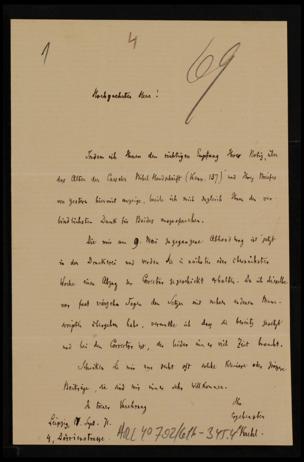 1
4
69
Hochgeehrter Herr!
Indem ich Ihnen den richtigen Empfang Ihrer Notiz, über
das Alter der Casseler Bibel Handschrift (Kenn. 157) und Ihres Briefes
von gestern hiermit anzeige, beeile ich mich zugleich Ihnen den ver-
bindlichsten Dank für Beides auszusprechen.
Die mir am 9. Mai zugegangene Abhandlung ist jetzt
in der Druckerei und werden Sie in nächster oder übernächster
Woche einen Abzug der Correctur zugeschickt erhalten. Da ich dieselbe
vor fast vierzehn Tagen dem Setzer mit mehren anderen Manu-
scripten übergeben habe, vermuthe ich dass sie bereits gesetzt
und bei dem Corrector ist, der leider immer viel Zeit braucht.
Schicken Sie mir nur recht oft solche kleinere oder grössere
Beiträge, sie sind mir immer sehr willkommen.
In treuer Verehrung
Ihr
Ergebenster
Leipzig, Sept. 71.
4,